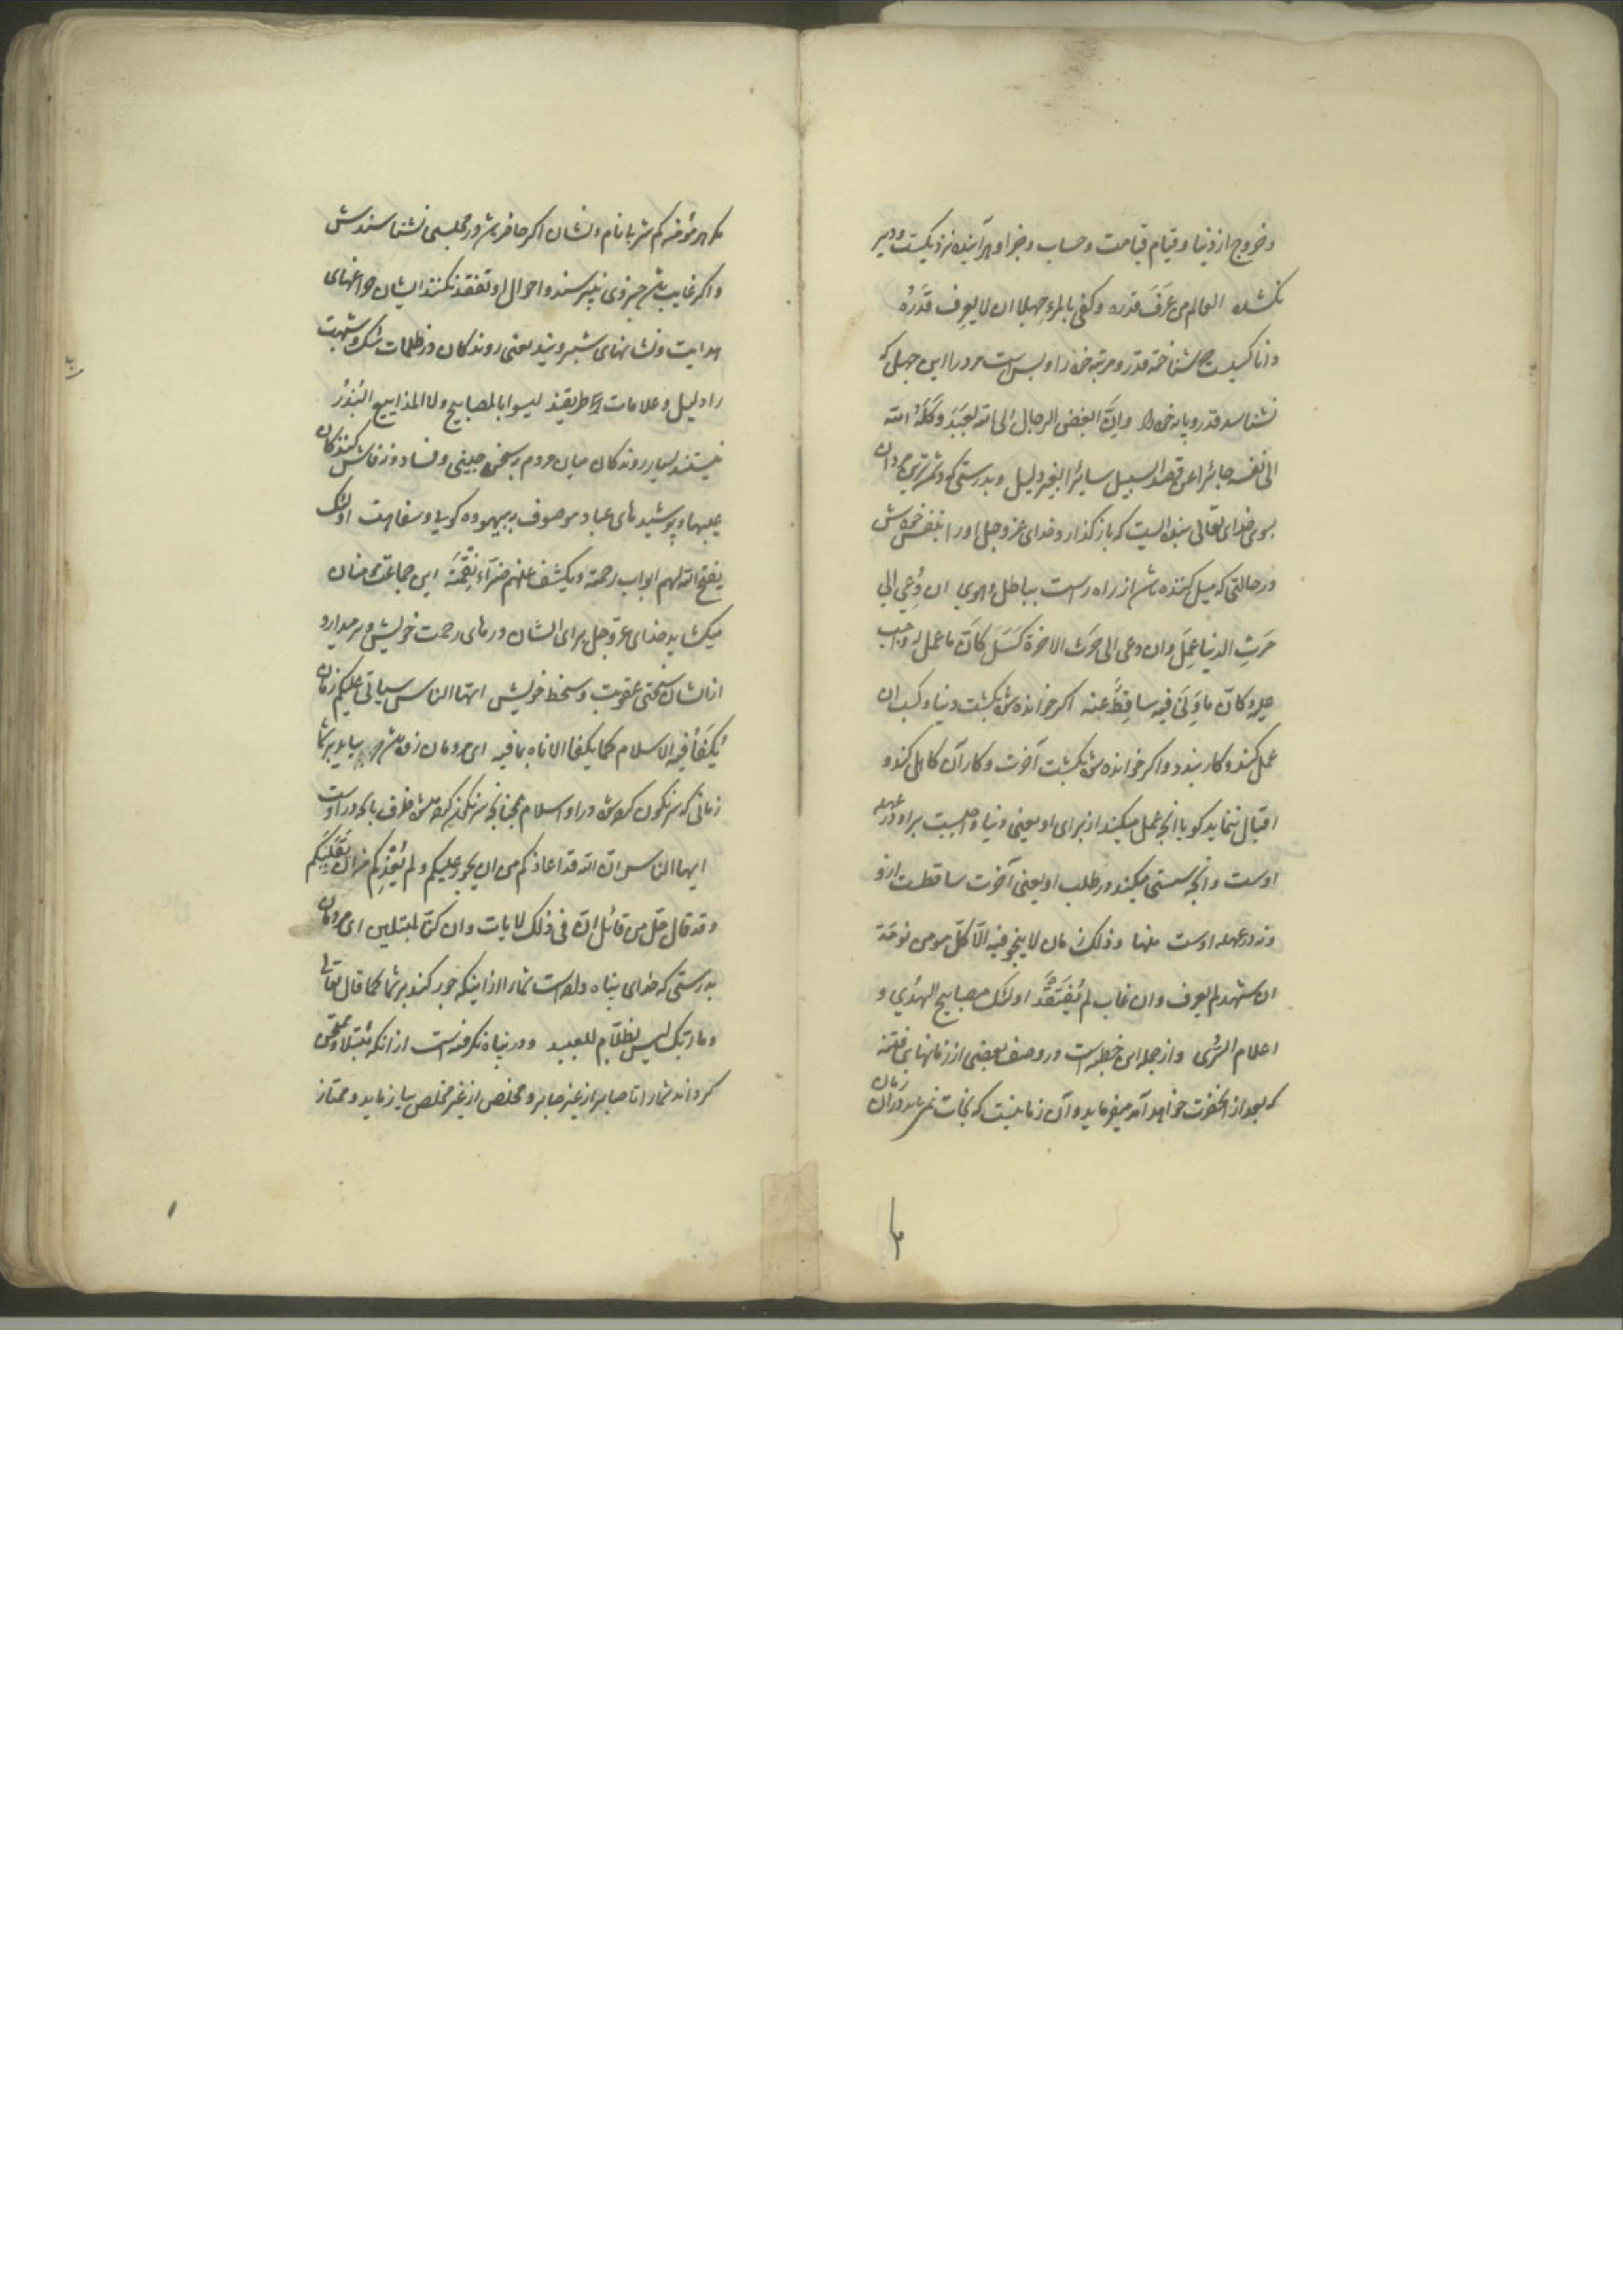 و خروج از دنیا و قیام قیامت و حساب و جزا و هر آینده نزدیکست و دیر
نکشد العالم من عَرَفَ قدره و کفی بالمرء جهلا ان لا یعرف قَدْرَهُ
دانا کسیست که شناخته قدر و مرتبه خود را و بس است مرد را این جهل که
نشناسد قدر و پایه خود را و اِنَّ ابغض الرجال الی الله لعَبْدٌ وَکَلَهُ الله
الی نفسه جائرا عن قصد السبیل سائرا بغیر دلیل و بدرستی که دشمن‌ترین مردان
بسوی خدای تعالی بنده ایست که باز گذارد خدای عز و جل او را بنفس خودش
در حالتی که میل کننده باشد از راه راست بباطل و هوی ان دُعِیَ الی
حَرثِ الدنیا عَمِلَ و ان دعی الی حَرثِ الاخرة کَسَلَ کَاَنَّ ما عمل له واجب
علیه و کاَنَّ ما وَنَی فیه ساقِطٌ عنه اگر خوانده شود بکشت دنیا و کسب ان
عمل کند و کار بندد و اگر خوانده شود بکشت آخرت و کار آن کاهلی کند و
اقبال ننماید گویا انچه عمل میکند از برای او یعنی دنیا واجبست بر او و در عهده
اوست و انچه سستی میکند در طلب او یعنی آخرت ساقطست ازو
و نه در عهده اوست منها و ذلک زمان لا ینجو فیه الّا کلّ مومن نومَة
ان شهد لم یعرف و ان غاب لم یُفتَقَد اولئک مصابیح الهُدی و
اعلام السُّری و از جمله این خطبه است در وصف بعضی از زمانهای فتنه
که بعد از انحضرت خواهد آمد میفرماید و آن زمانیست که نجات نمی‌یابد در ان زمان
مگر هر مؤمنه کم شر با نام و نشان اگر حاضر باشد در مجلسی نشناسندش
و اگر غایب باشد خبر وی نپرسند و احوال او تفقد نکنند ایشان چراغهای
هدایت و نشانهای شب‌روند یعنی روندگان در ظلمات شک و شبهت
را دلیل و علامات راه طریقند لیسوا بالمصابیح و لا المذاییع البُذُرُ
نیستند بسیار روندگان میان مردم بسخن چینی و فساد و نه فاش کنندگان
عیبها و پوشیدهای عباد موصوف ببیهوده گویی و سفاهت اولئک
یفتح الله لهم ابواب رحمته و یکشف عنهم ضَرّآءَ نِقْمَتِه این جماعت مؤمنان
میکشاید خدای عزّ و جل برای ایشان درهای رحمت خویش و بر میدارد
از ایشان سختی عقوبت و سخط خویش ایها الناس سیاتی علیکم زمان
یُکفَأُ فیه الاسلام کما یکفا الاناء بما فیه ای مردمان زود باشد که بیاید بر شما
زمانی که سرنگون کرده شود در او اسلام چنانچه سرنگون کرده شود ظرف با انچه در اوست
ایها الناس انّ الله قد اعاذکم من ان یجور علیکم و لم یُعِذکم من ان یَبْتَلیکم
و قد قال جلّ من قائل انّ فی ذلک لایات و ان کنّا لمبتلین ای مردمان
بدرستی که خدای پناه داده است شما را از اینکه جور کند بر شما کما قال تعالی
و ما ربّک بظلّام للعبید و در پناه نگرفته است از انکه مبتلا و ممتحن
گرداند شما را تا صابر از غیر صابر و مخلص از غیر مخلص بیازماید و ممتاز